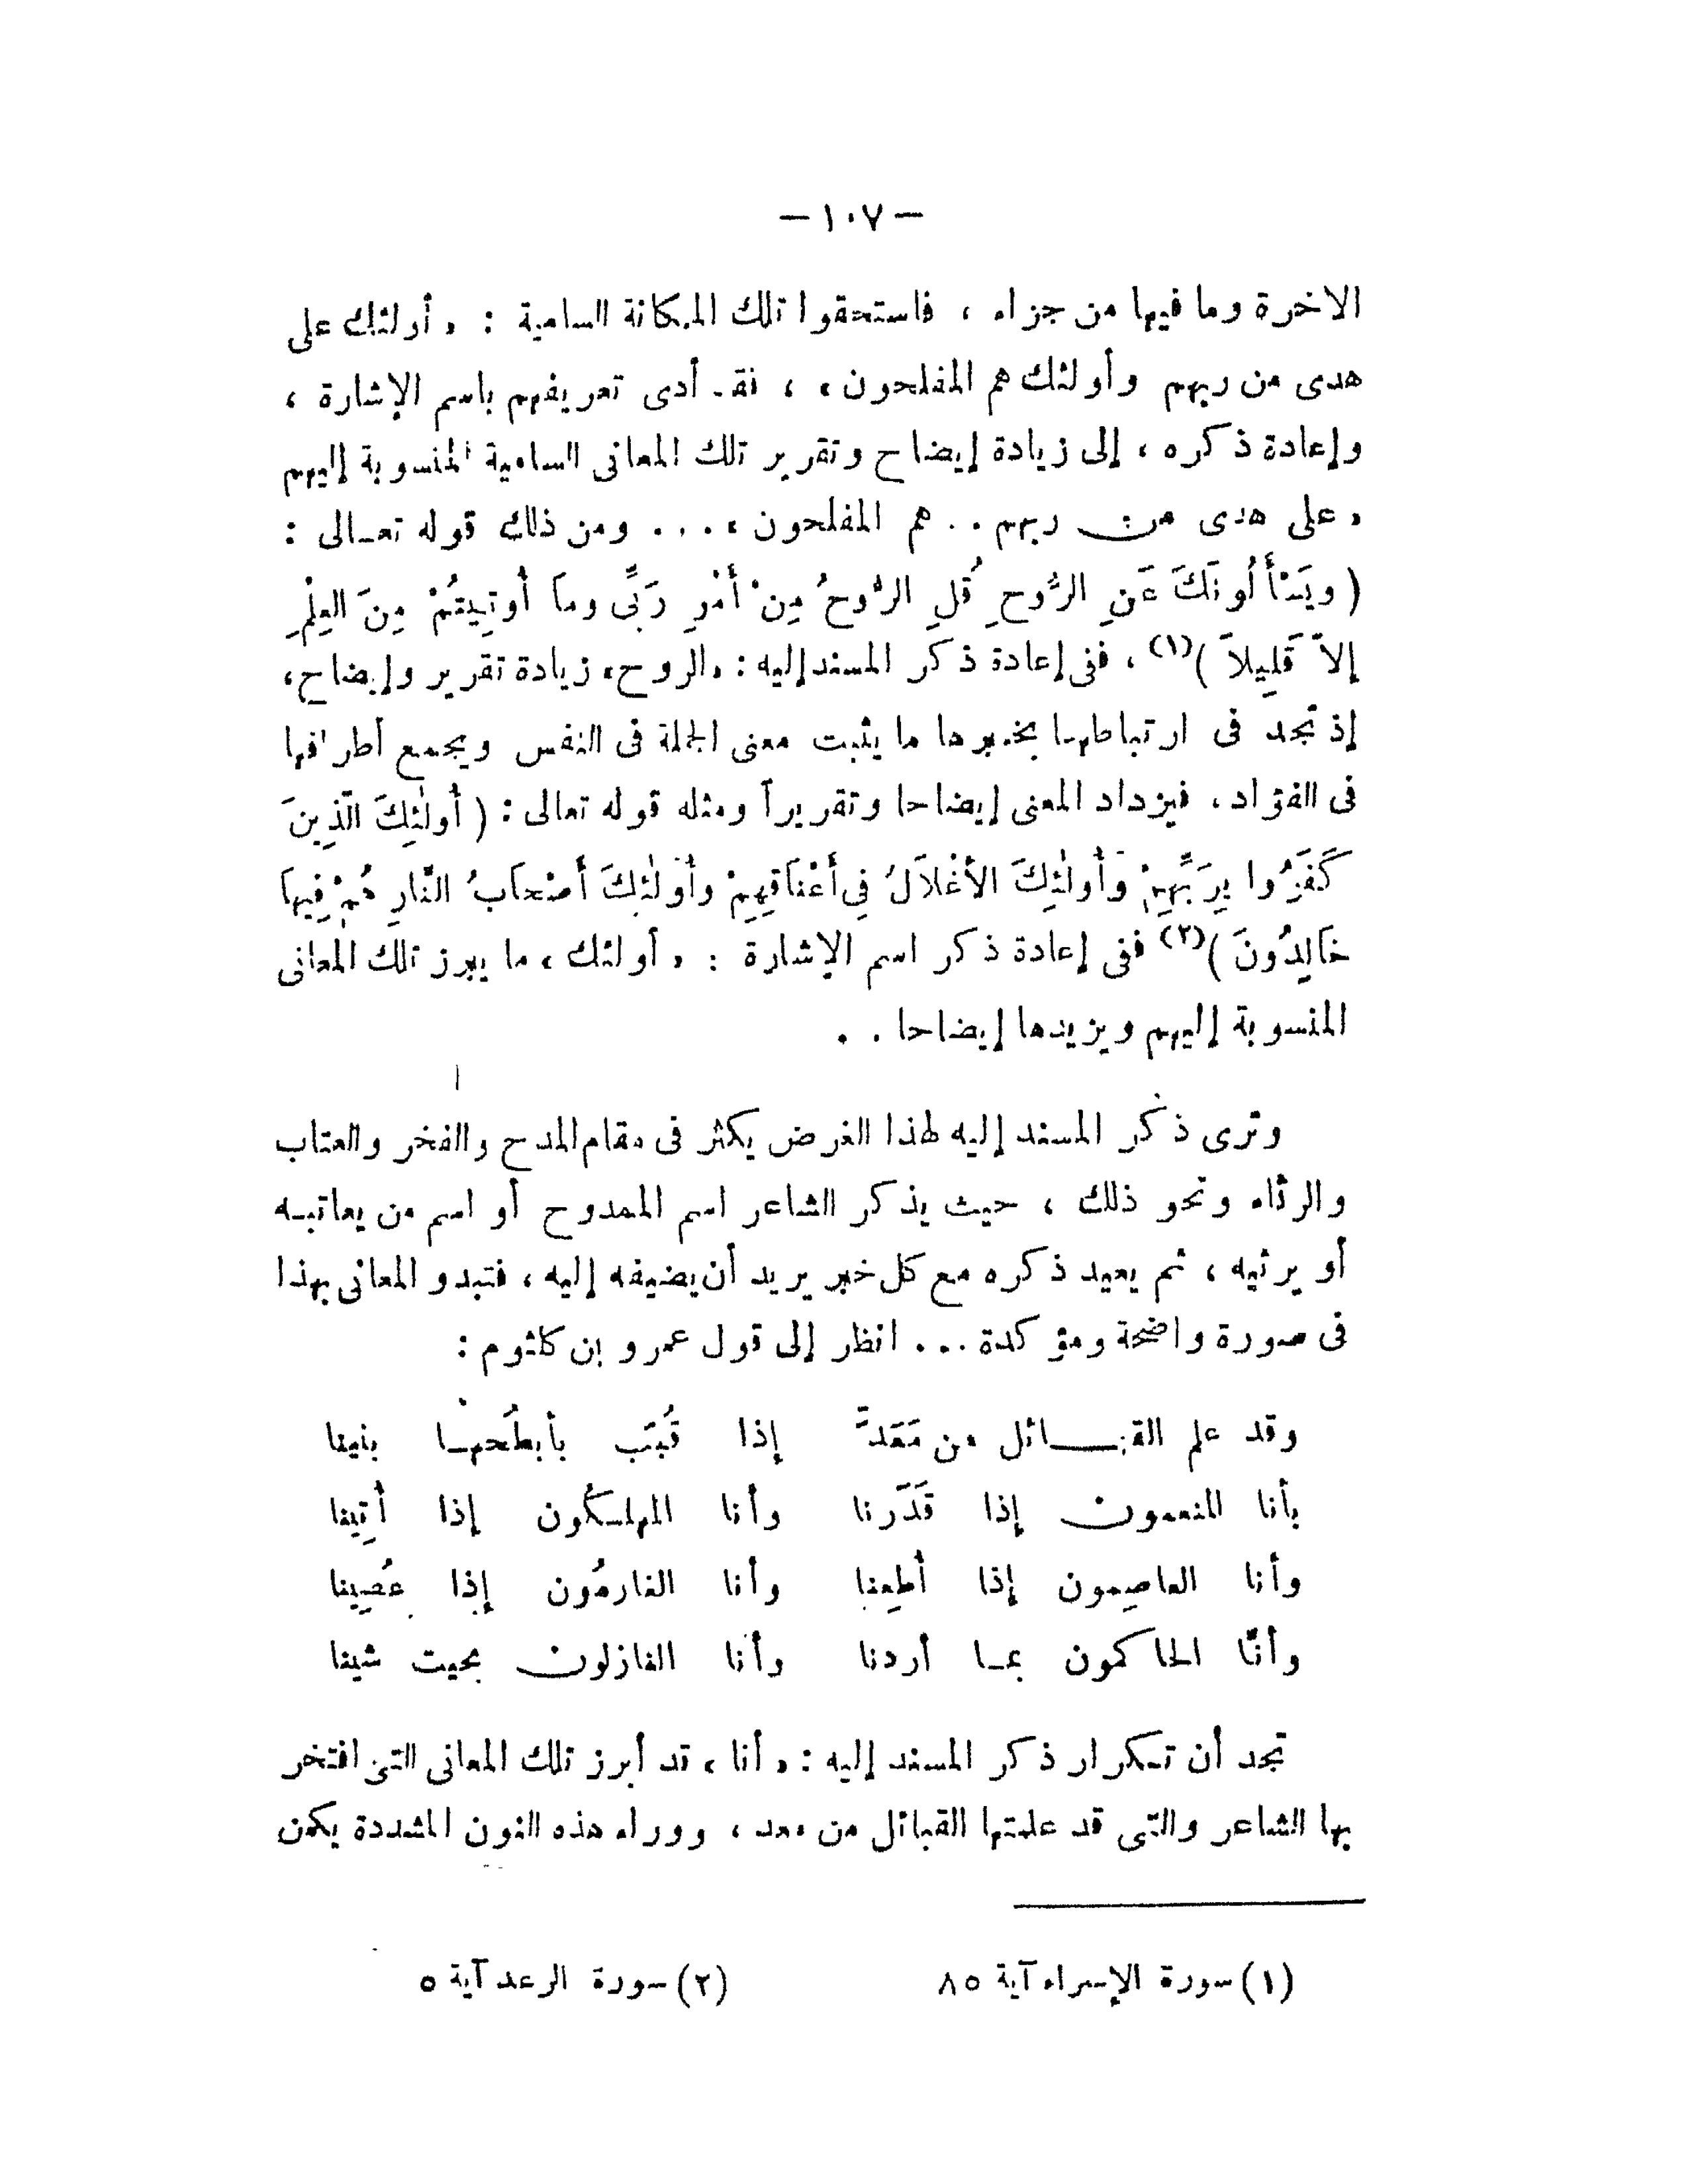 — ١٠٧ —
الاخرة وما فيها من جزاء ، فاستحقوا تلك المكانة السامية : « أولئك على
هدى من ربهم وأولئك هم المفلحون » ، فقد أدى تعريفهم باسم الإشارة ،
وإعادة ذكره ، إلى زيادة إيضاح وتقرير تلك المعانى السامية المنسوبة إليهم
« على هدى من ربهم .. هم المفلحون » ... ومن ذلك قوله تعالى :
( ويَسْأَلُونَكَ عَنِ الرُّوحِ قُلِ الرُّوحُ مِنْ أَمْرِ رَبِّى وما أُوتِيتُمْ مِنَ العِلْمِ
إلاّ قَلِيلاً )(١) ، ففى إعادة ذكر المسند إليه : «الروح» زيادة تقرير وإيضاح،
إذ تجد فى ارتباطهما بخبرها ما يثبت معنى الجملة فى النفس ويجمع أطرافها
فى الفؤاد ، فيزداد المعنى إيضاحا وتقريراً ومثله قوله تعالى : ( أُولٰئِكَ الّذِينَ
كَفَرُوا بِرَبِّهِمْ وَأُولٰئِكَ الأَغْلَالُ فِى أَعْنَاقِهِمْ وأُولٰئِكَ أَصْحَابُ النَّارِ هُمْ فِيهَا
خَالِدُونَ )(٢) ففى إعادة ذكر اسم الإشارة : « أولئك » ما يبرز تلك المعانى
المنسوبة إليهم ويزيدها إيضاحا . .
وترى ذكر المسند إليه لهذا الغرض يكثر فى مقام المدح والفخر والعتاب
والرثاء ونحو ذلك ، حيث يذكر الشاعر اسم الممدوح أو اسم من يعاتبه
أو يرثيه ، ثم يعيد ذكره مع كل خبر يريد أن يضيفه إليه ، فتبدو المعانى بهذا
فى صورة واضحة ومؤكدة ... انظر إلى قول عمرو بن كلثوم :
وقد علم القبائل من مَعَدّ إذا قُبَب بأبطُحهما بنينا
بأنا المنعمون إذا قَدَرنا وأنا المهلكُون إذا أُتِينا
وأنا العاصِمون إذا أُطِعنا وأنا الغارمُون إذا عُصِينا
وأنّا الحاكمون بما أردنا وأنا النازلون بحيث شينا
تجد أن تكرار ذكر المسند إليه : « أنا » قد أبرز تلك المعانى التى افتخر
بها الشاعر والتى قد علمتها القبائل من معد ، ووراء هذه النون المشددة يكمن
(١) سورة الإسراء آية ٨٥ (٢) سورة الرعد آية ٥